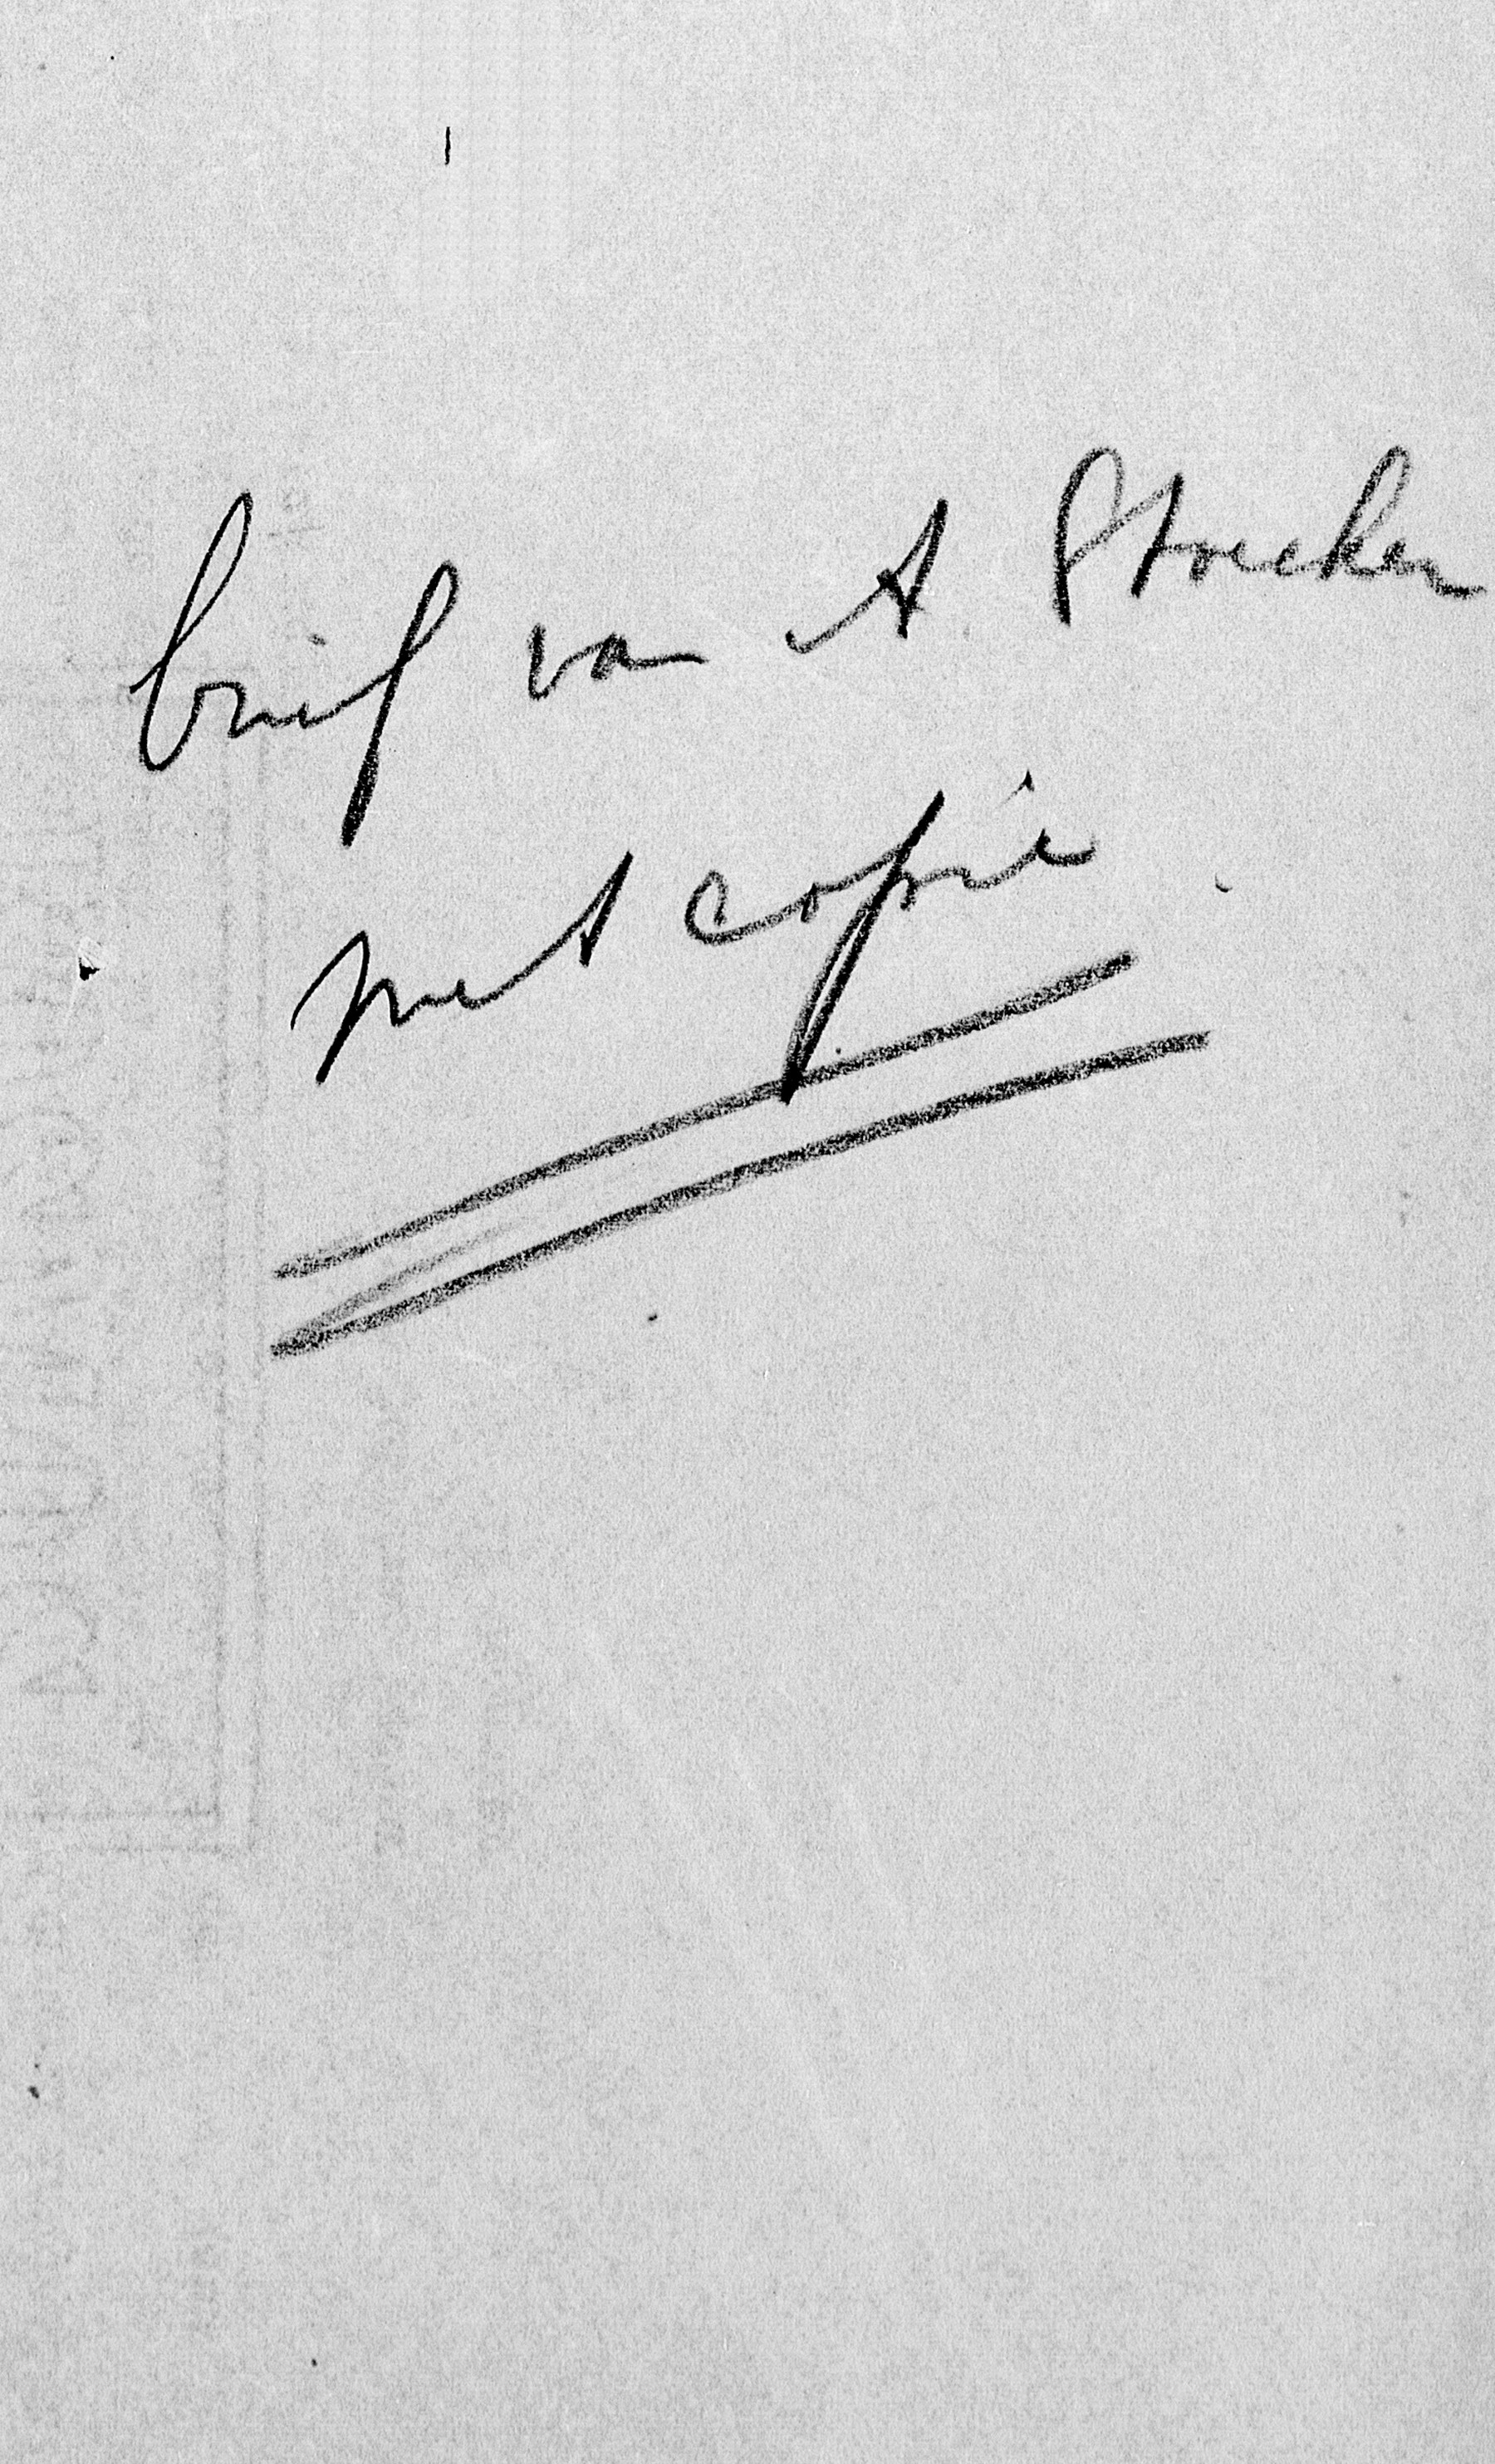 brief van A Stoecker
met copie